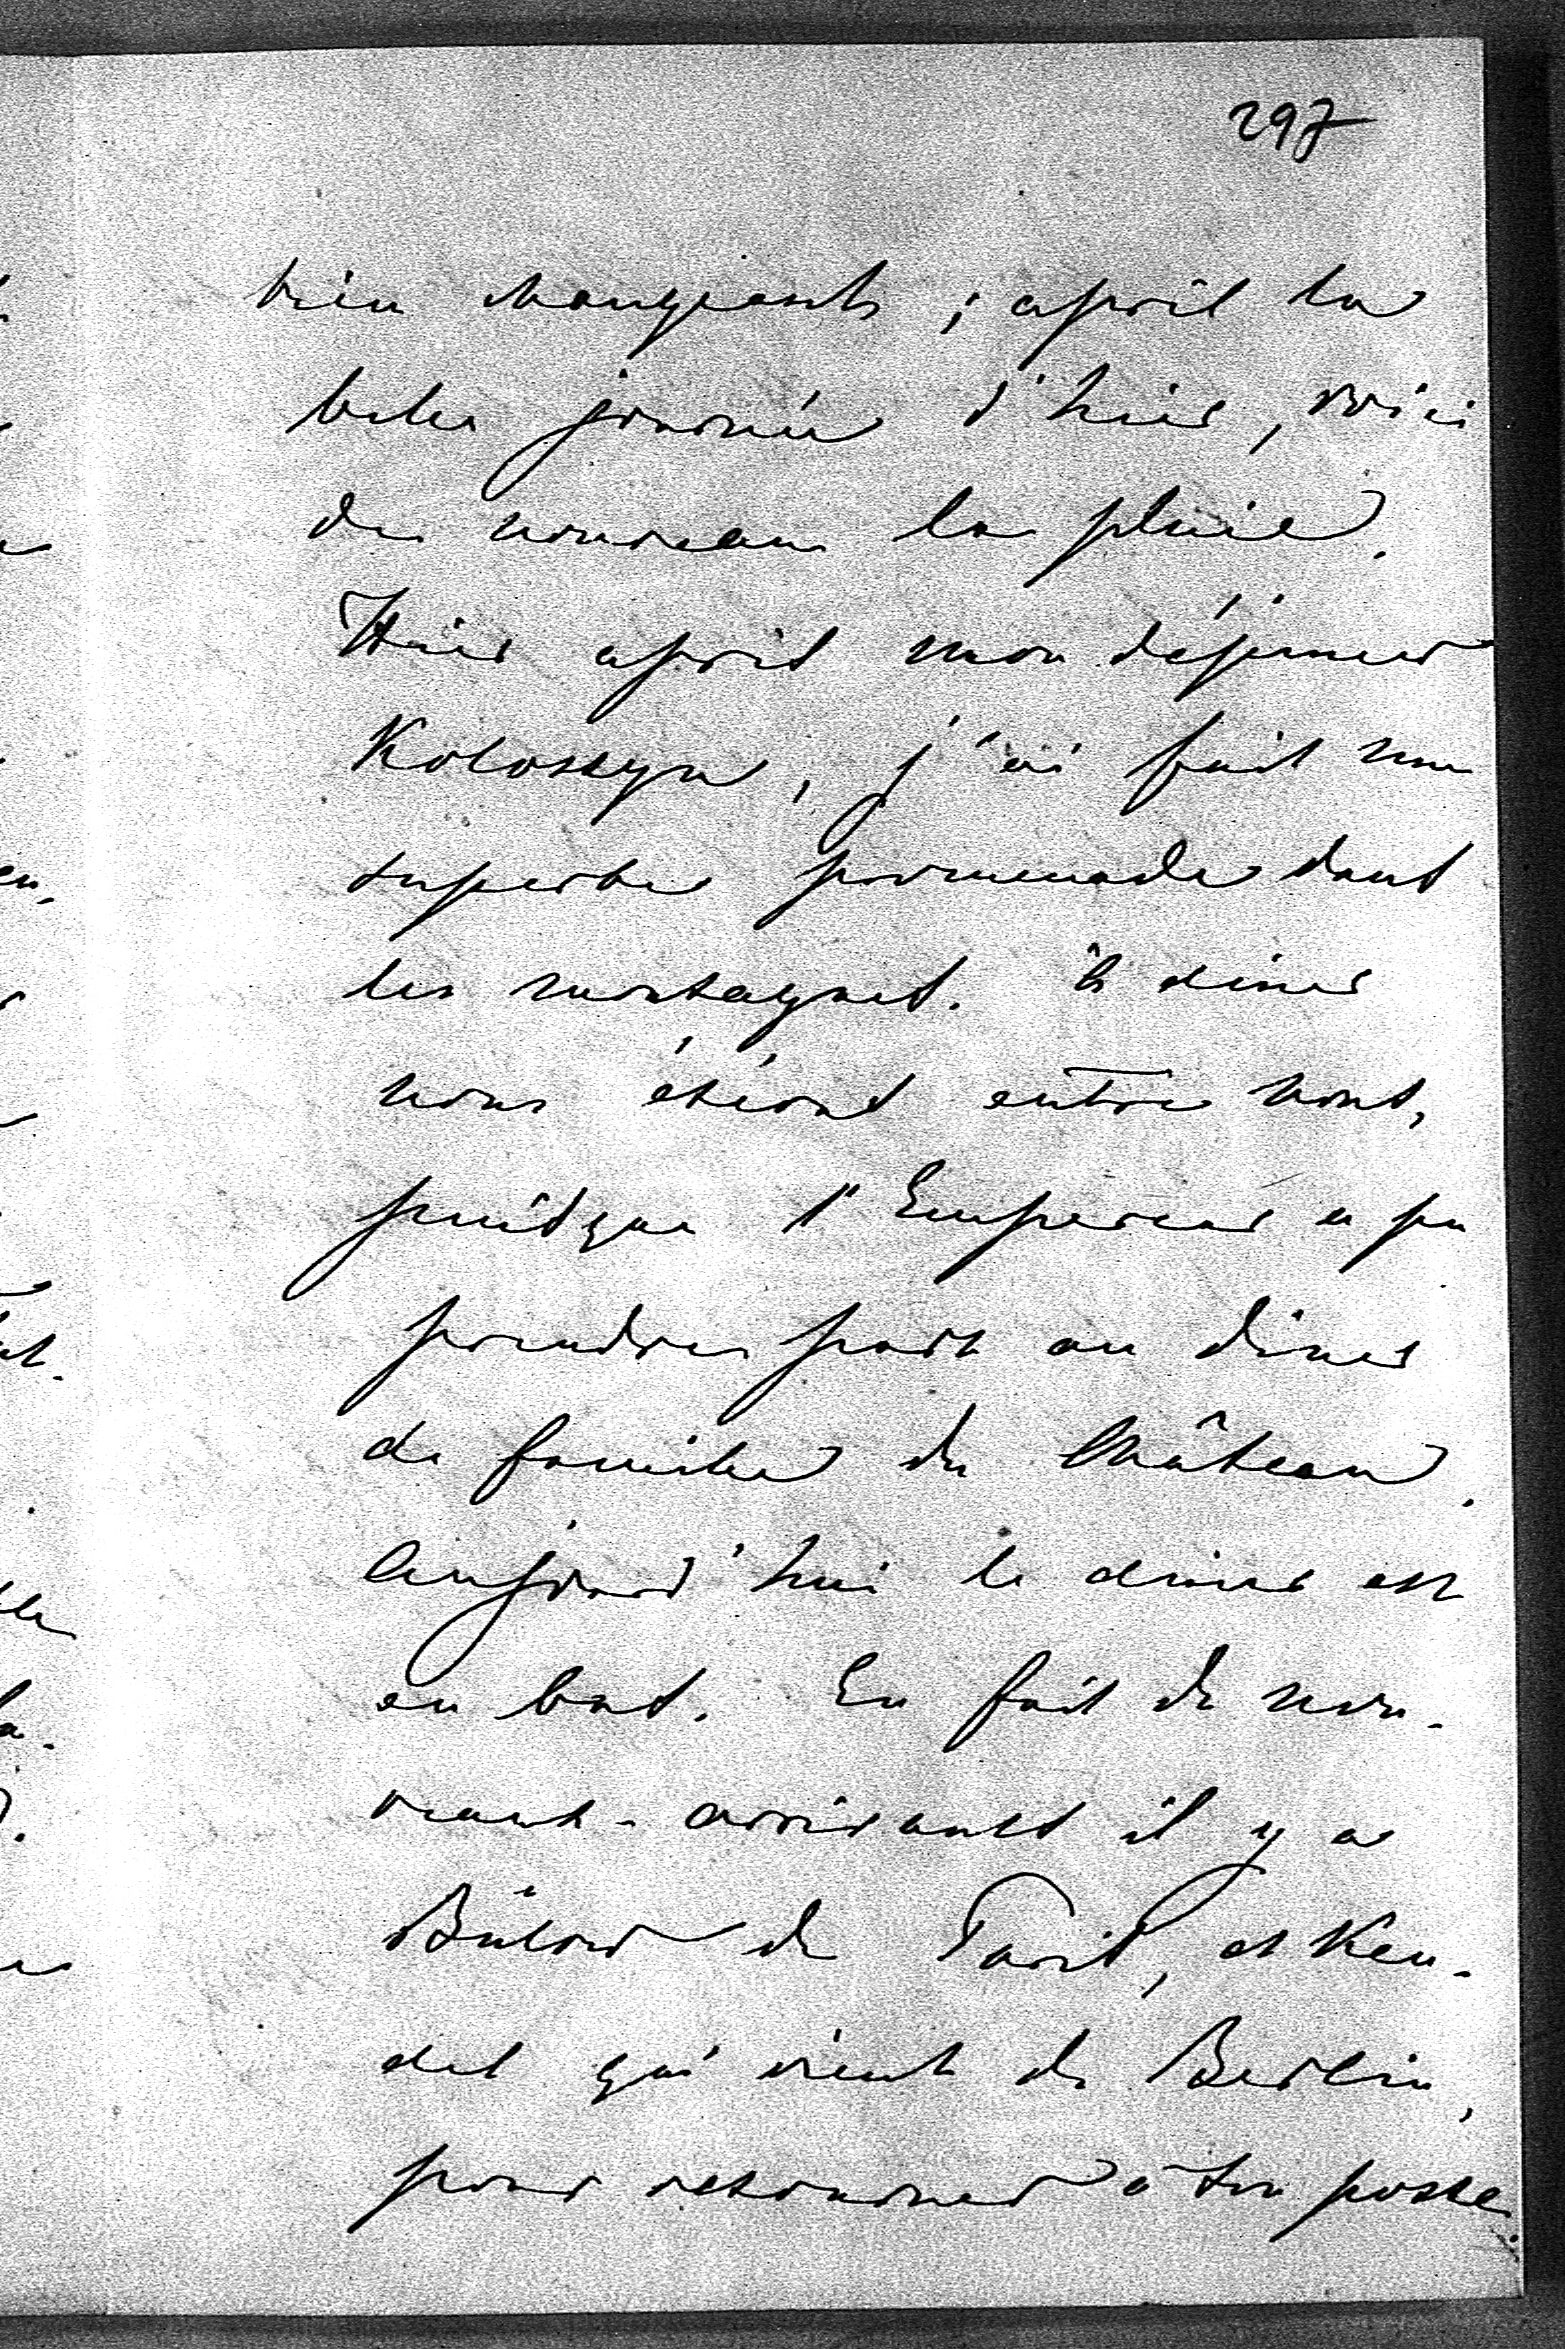 297
bien changeants ; après la
belle journée d'hier, voici
de nouveau la pluie.
Hier après mon déjeuner
Koloskyn, j'ai fait une
superbe promenade dans
les montagnes. à diner
nous étions entre nous,
puisque l'Empereur a pu
prendre part au diner
de famille du Château.
Aujourd'hui le diner est
en bas. En fait de nou-
veaux-arrivants il y a
Bülow de Paris, et Keu-
del qui vient de Berlin,
pour retourner à son poste.